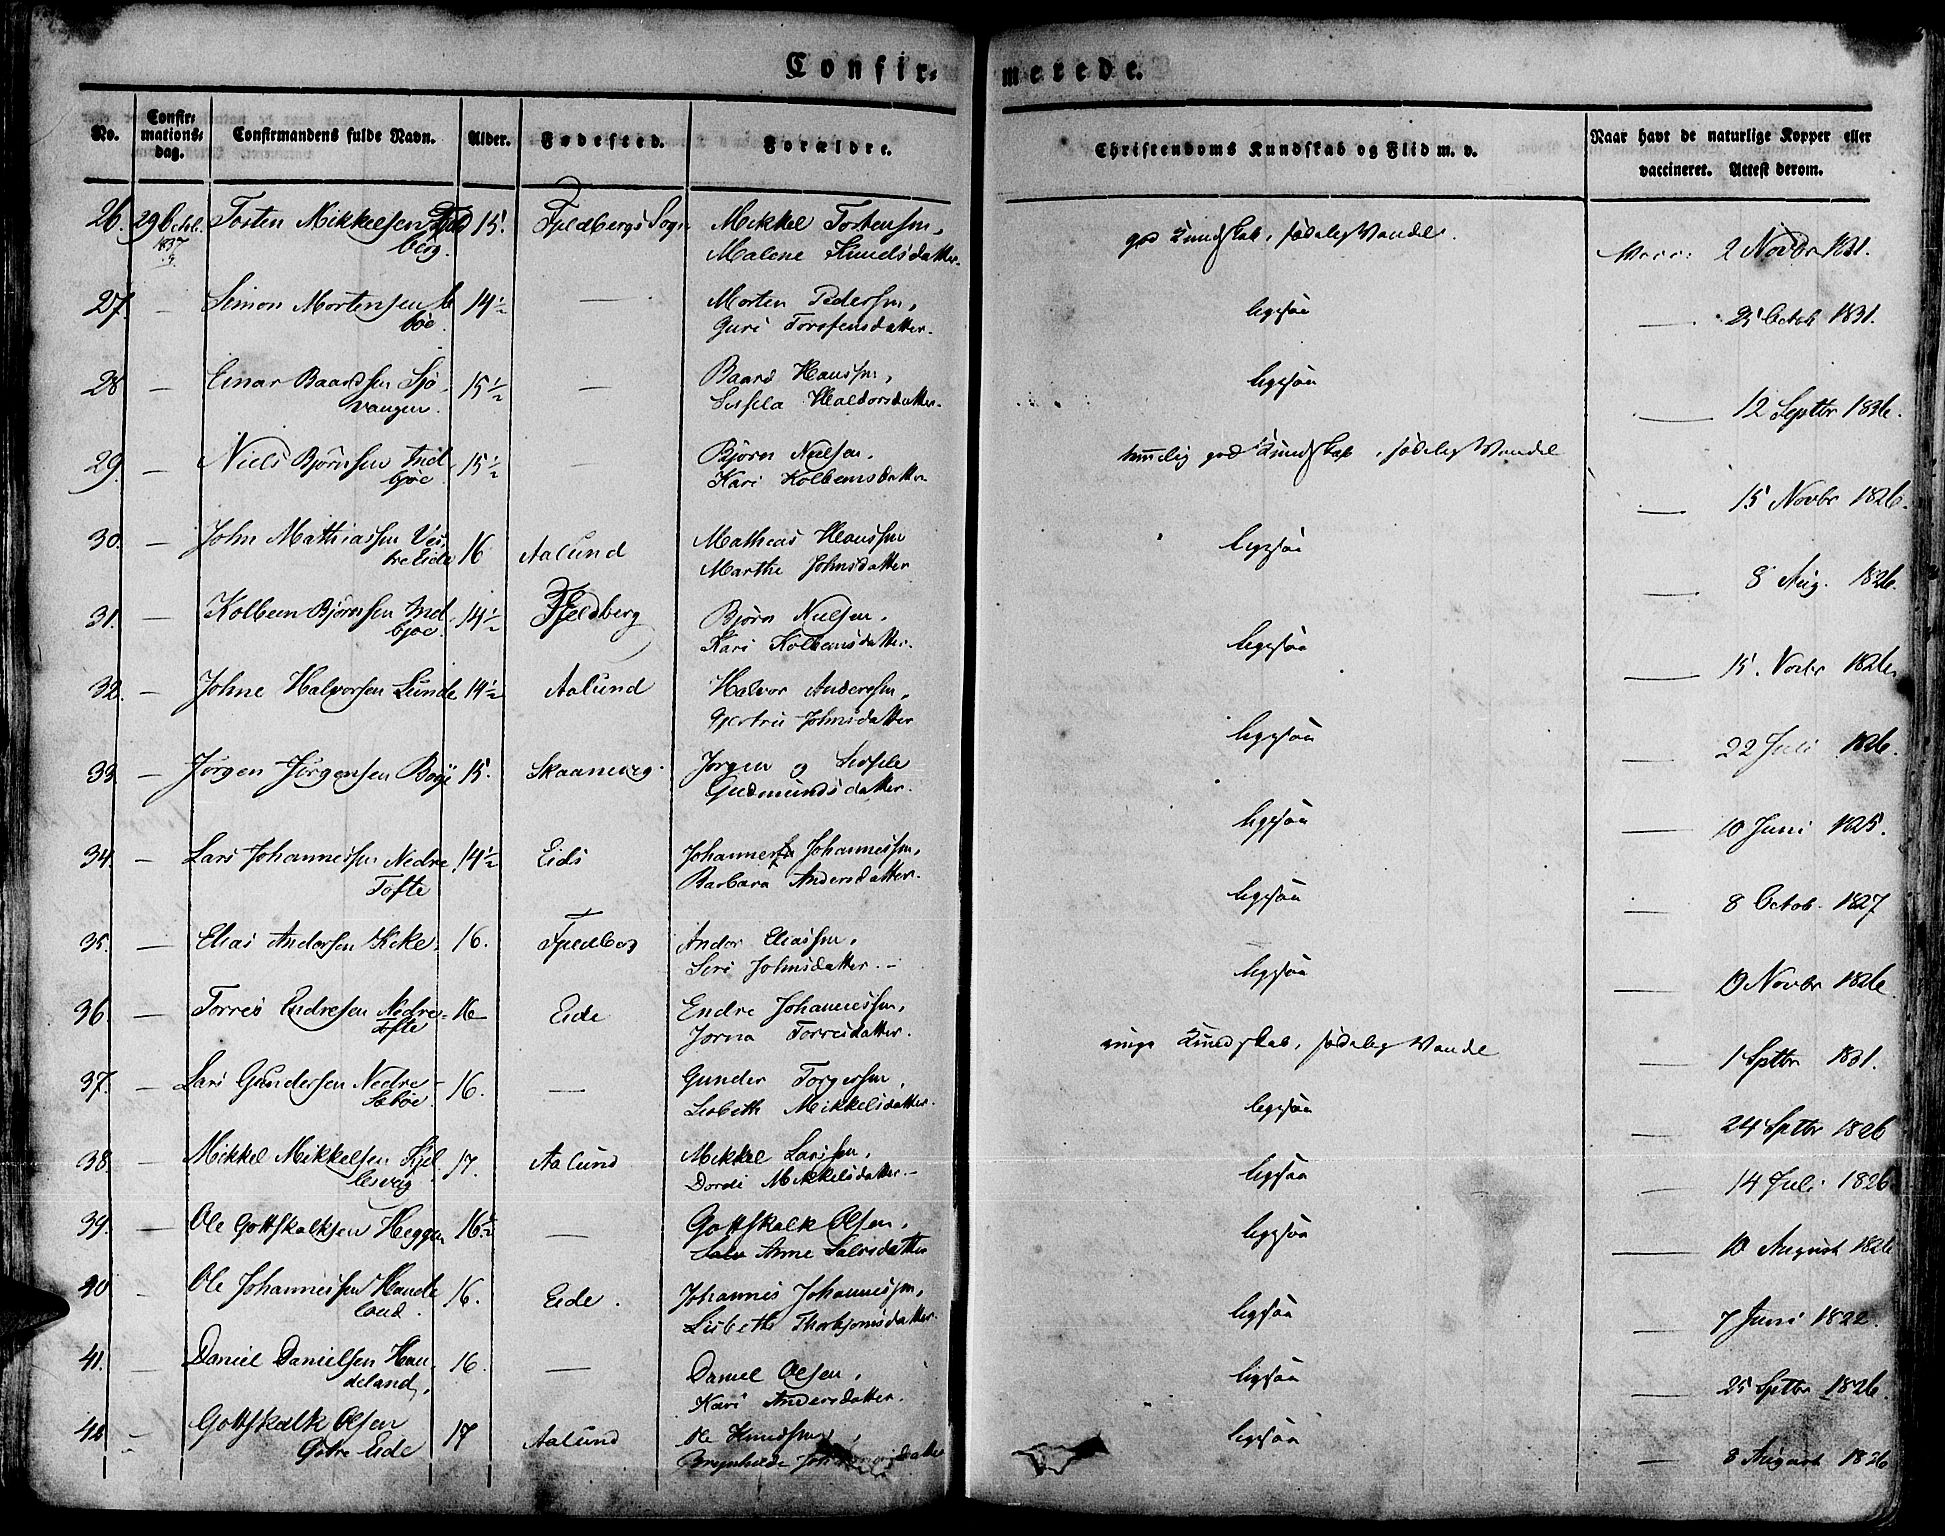 Confir- merede.
No. Confir-mations-dag. Confirmandens fulde Navn. Alder. Fødested. Forældre. Christendoms Kundskab og Flid m. v. Naar havt de naturlige Kopper eller vaccineret. Attest derom.
26. 29 Octob. 1837 Tosten Mikkelsen 15. Fjeldbergs Sogn Mikkel Tostensen, god Kundskab, sædelig Vandel. Vacc: 2 Novbr 1831.
berg. Malene Knudsdatter.
27. — Simon Mortensen 14½ — Morten Pedersen, ligesaa — 25 Octob 1831.
bøe. Guri Torstensdatter.
28 — Einar Baardsen Sjo- 15½ — Baard Hansen, ligesaa — 12 Septbr 1836.
vangen. Sissela Haldorsdatter.
29. — Niels Bjørnsen Ind- 15½ — Bjørn Nielsen, temmelig god Kundskab, sædelig Vandel — 15 Novbr 1826.
bjoe. Kari Kolbensdatter
30. — John Mathiassen Ves- 16 Aalund Mathias Hansen ligesaa — 8 Aug. 1826.
treEide Marthe Johnsdatter
31. — Kolben Bjørnsen Ind- 14½ Fjeldberg Bjørn Nielsen, ligesaa — 15. Novbr 1826
bjoe. Kari Kolbensdatter.
32. — Johne Halvorsen Lunde 14½ Aalund Halvor Andersen, ligesaa — 22 Juli 1826.
Gjertru Johnsdatter
33 — Jørgen Jørgensen Boge 15. Skaanevig. Jørgen og Sissele ligesaa — 10 Juni 1825.
Gudmundsdatter.
34. — Lars Johannessen Nedre 14½ Eids Johannes Johannessen, ligesaa — 8 Octob. 1827
Tofte Barbara Andersdatter.
35. — Elias Andersen Eike. 16. Fjeldberg Ander Eliassen, ligesaa — 19 Novbr 1826
Siri Johnsdatter. —
36. — Torres Endresen Nedre- 16 Eide Endre Johannessen, ringe Kundskab, sædelig Vandel — 1 Sptbr 1831.
Tofte Jorna Torresdatter.
37. — Lars Gundersen Nedre- 16. — Gunder Torgersen, ligesaa — 24 Sptbr 1826
Sæbøe. Lisbeth Mikkelsdatter.
38 — Mikkel Mikkelsen Kjel- 17. Aalund Mikkel Larsen, ligesaa — 14 Juli 1826
lesvig Dordi Mikkelsdatter. —
39. — Ole Gottskalksen Heggen 16½ — Gottskalk Olsen, ligesaa — 10 August 1826
Anne Salvesdatter
40 — Ole Johannessen Hande- 16. Eide. Johannes Johannessen, ligesaa — 7 Juni 1822.
land. Lisbeth Thorbjornsdatter.
41. — Daniel Danielsen Han- 16. — Daniel Olsen, ligesaa — 25 Sptbr 1826.
deland, Kari Andersdatter.
42 — Gottskalk Olsen 17 Aalund Ole Knudsen, ligesaa — 8 August 1826
Eide Brynhilde